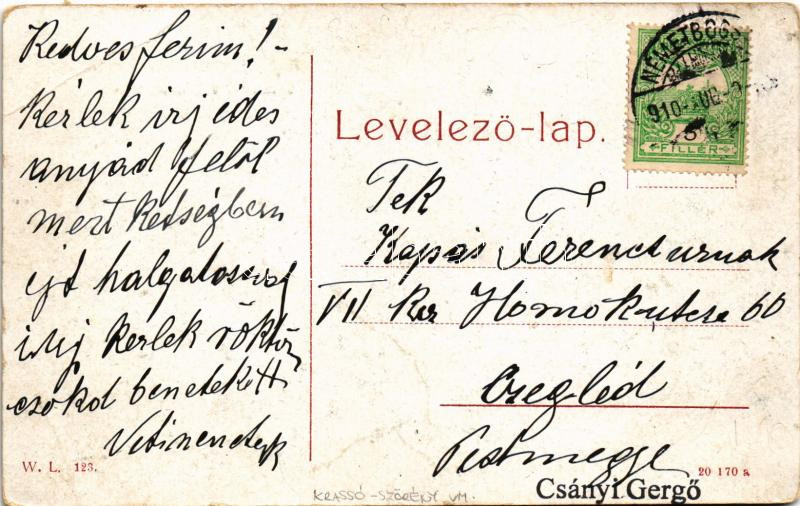 Kedves ferim! -
kérlek irj édes
anyád felöl
mert ketségbem
ejt halgatossad
irtij kerlek röktön
csokol benetekett
Levelezö-lap.
NÉMETBOGS
910
FILLÉR
Tek
Kapás Ferenc urnak
VII ker Homok utcza 60
Czegléd
Pestmegye
W. L. 123.
20 170 a
KRASSÓ-SZÖRÉNY VM.
Csányi Gergő